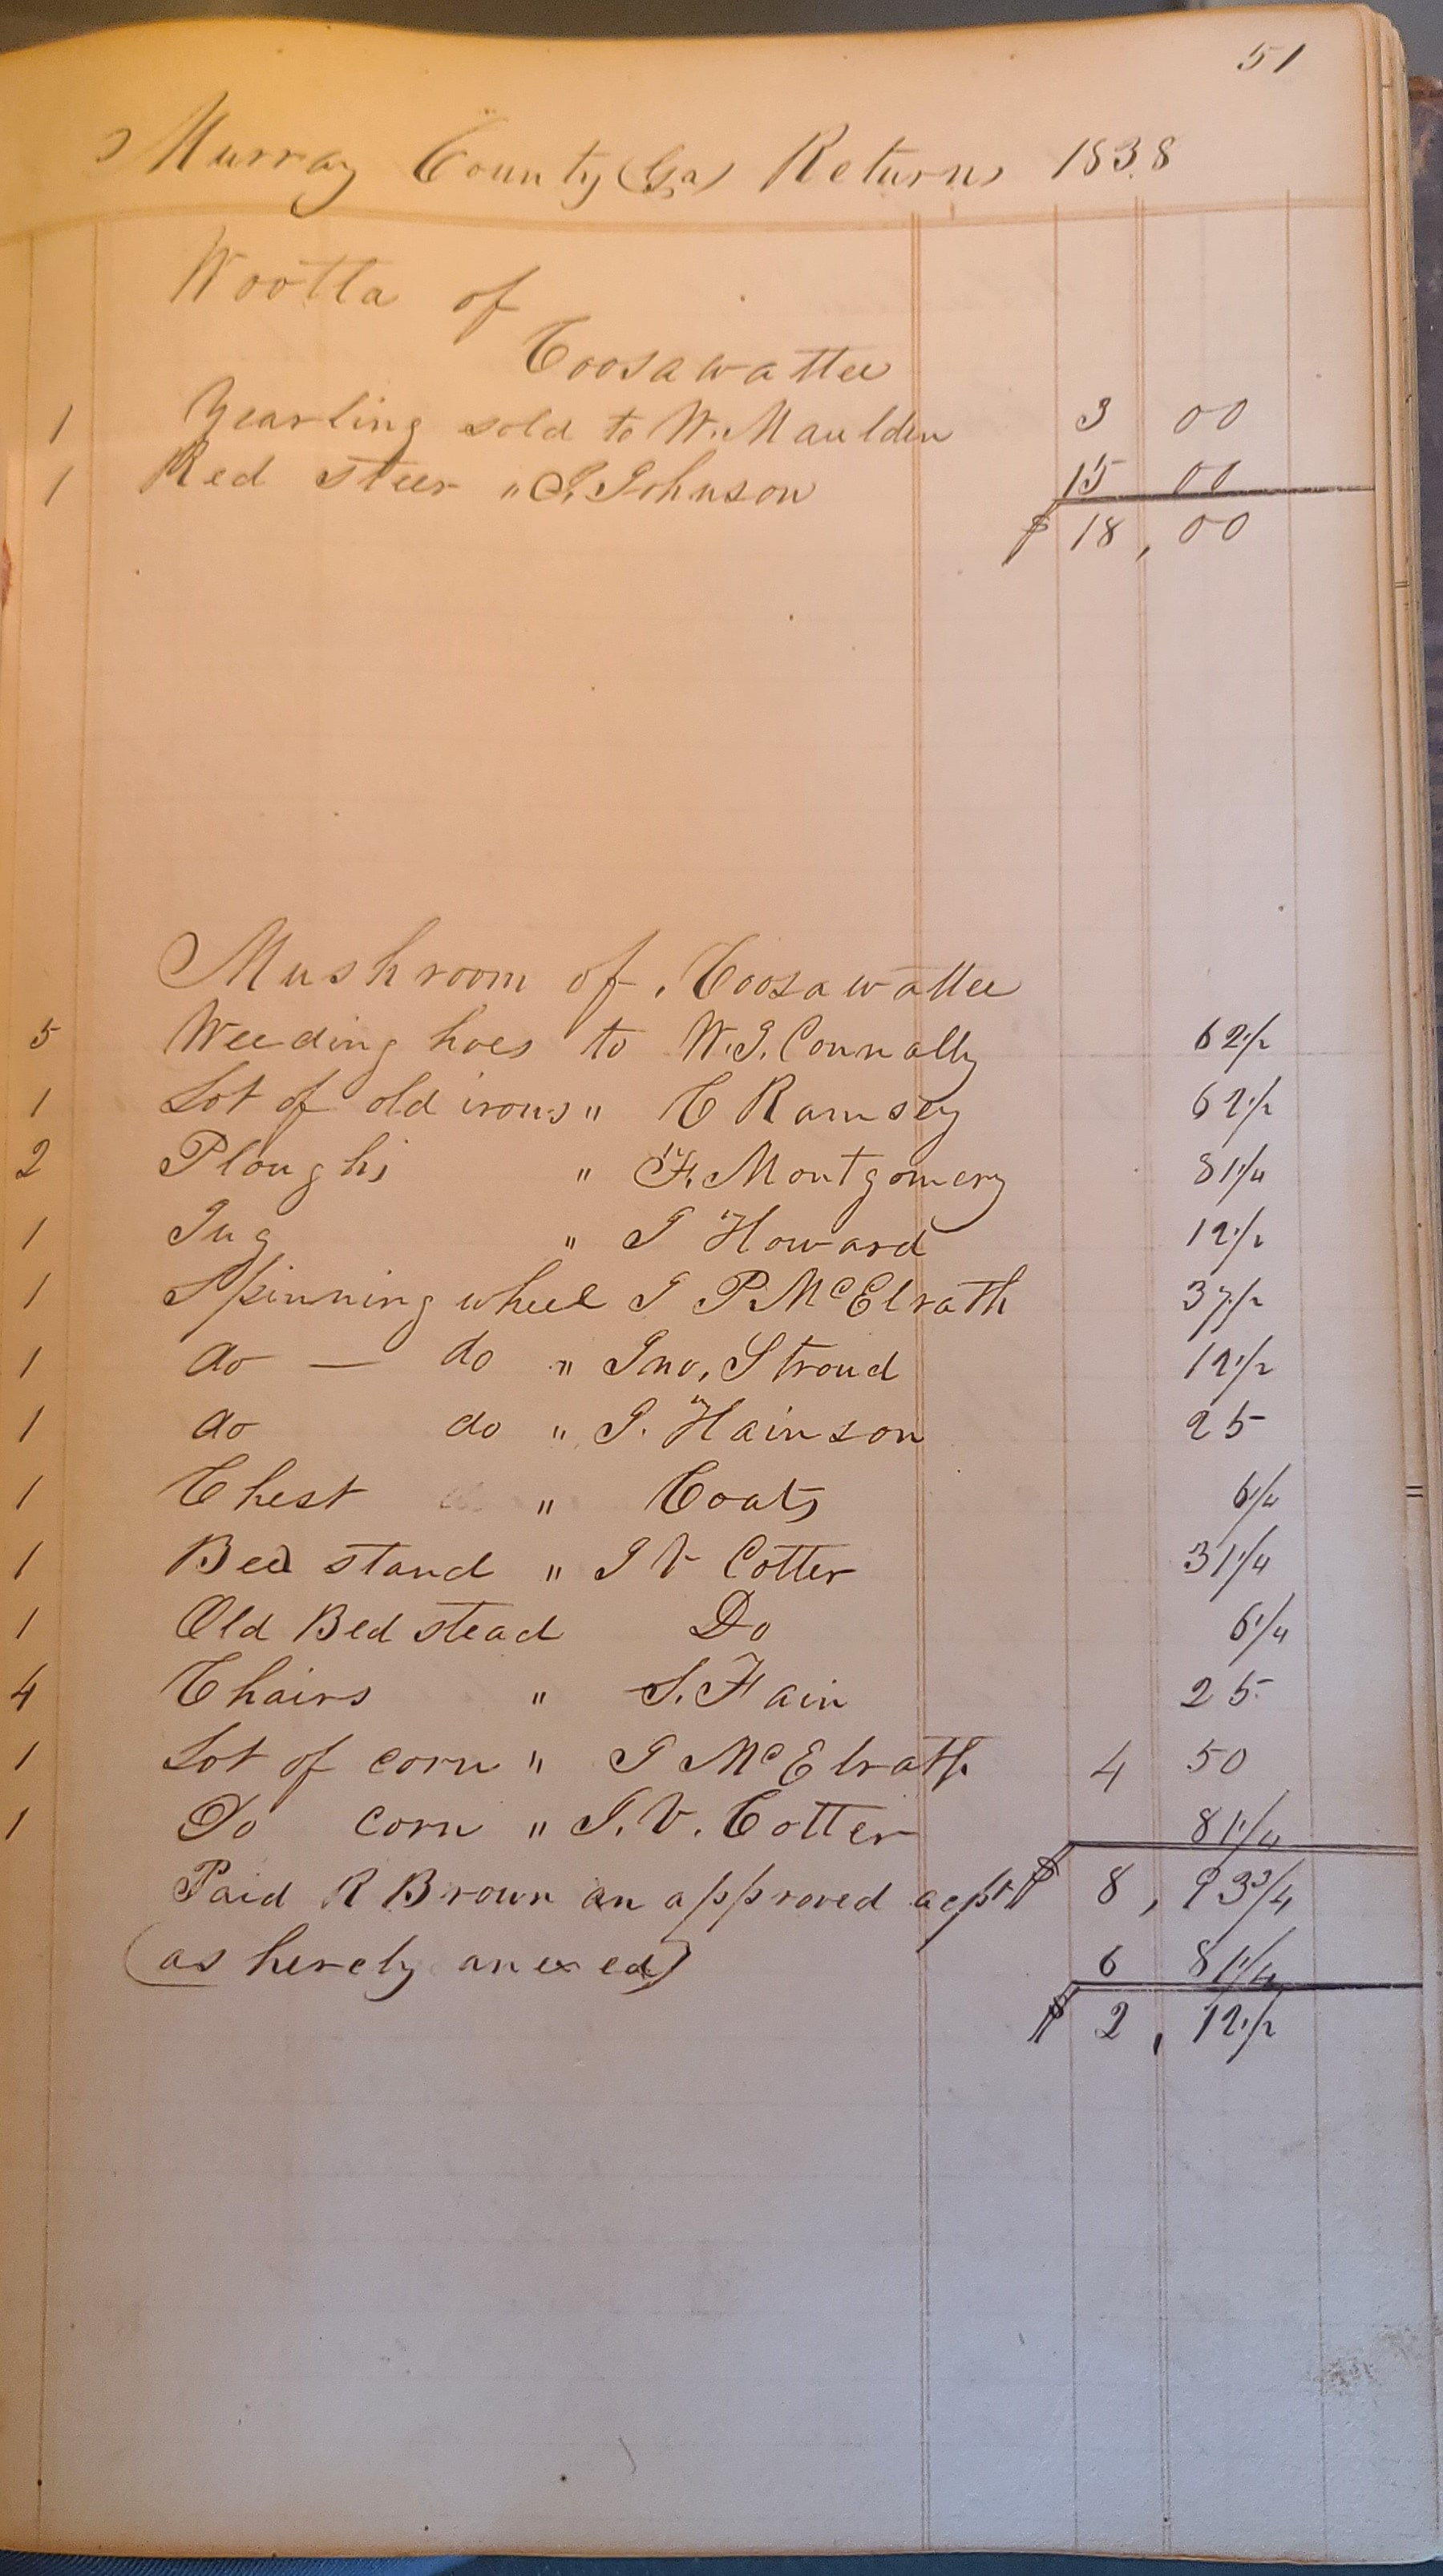 51
Murray County (Ga) Returns 1838
Wootta of
Coosawattee
1 Yearling sold to W. Maulden 3 00
1 Red Steer " J. Johnson 15 00
$ 18, 00
Mushroom of Coosawattee
5 Weeding hoes to W. J. Connally 62 1/2
1 Lot of old irons " C Ramsey 62 1/2
2 Ploughs " F. Montgomery 81 1/4
1 Jug " J Howard 12 1/2
1 Spinning wheel J P McElrath 37 1/2
1 do — do " Jno. Stroud 12 1/2
1 do do " J. Hainson 25
1 Chest " Coats 6 1/4
1 Bed stand " J V Cotter 31 1/4
1 Old Bed stead Do 6 1/4
4 Chairs " S. Fain 25
1 Lot of corn " J McElrath 4 50
1 Do corn " J. V. Cotter 81 1/4
Paid R Brown an approved acpt $ 8, 93 3/4
(as herely anexed) 6 81 1/4
$ 2, 12 1/2